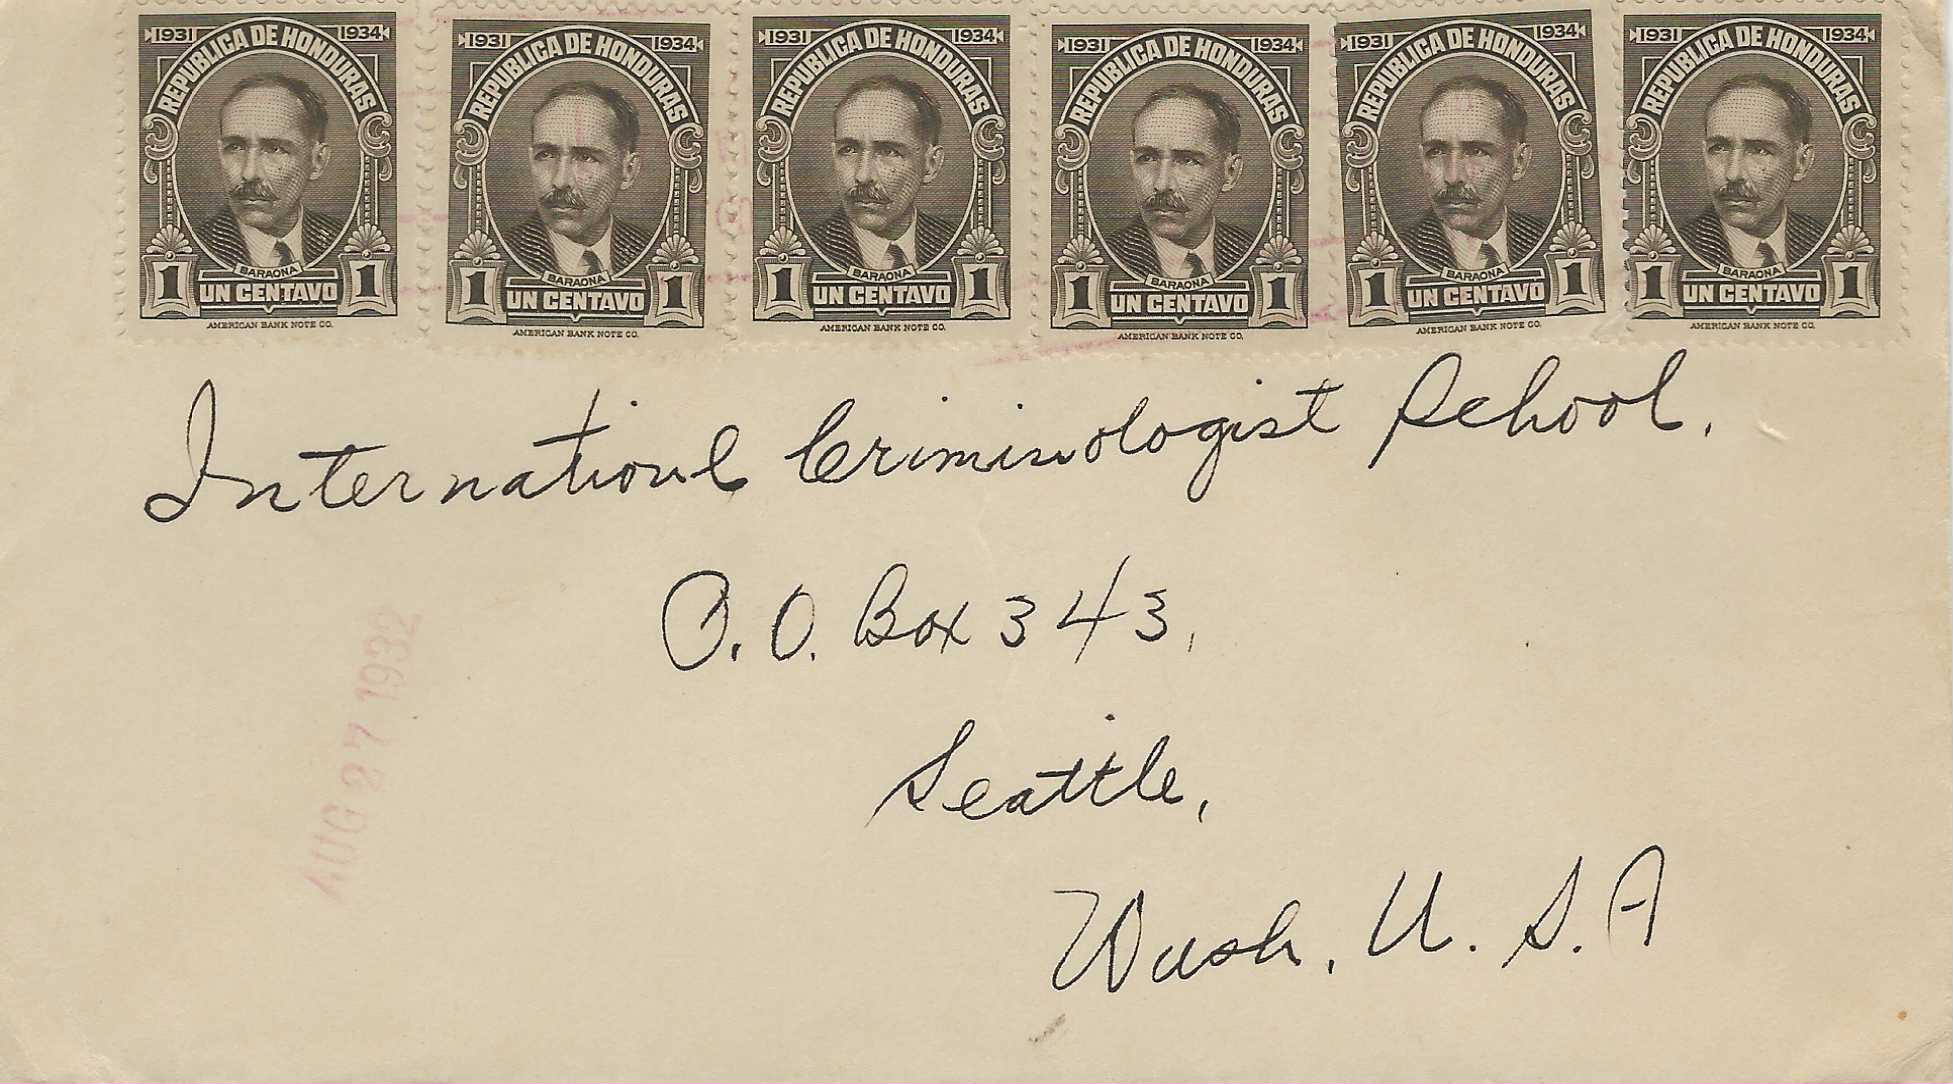 1931 1934 1931 1934 1931 1934 1931 1934 1931 1934 1931 1934
REPUBLICA DE HONDURAS REPUBLICA DE HONDURAS REPUBLICA DE HONDURAS REPUBLICA DE HONDURAS REPUBLICA DE HONDURAS REPUBLICA DE HONDURAS
BARAONA BARAONA BARAONA BARAONA BARAONA BARAONA
1 UN CENTAVO 1 1 UN CENTAVO 1 1 UN CENTAVO 1 1 UN CENTAVO 1 1 UN CENTAVO 1 1 UN CENTAVO 1
AMERICAN BANK NOTE CO. AMERICAN BANK NOTE CO. AMERICAN BANK NOTE CO. AMERICAN BANK NOTE CO. AMERICAN BANK NOTE CO. AMERICAN BANK NOTE CO.
Internationl Criminologist School.
P.O. Box 343,
Seattle,
Wash, U.S.A
AUG 27 1932